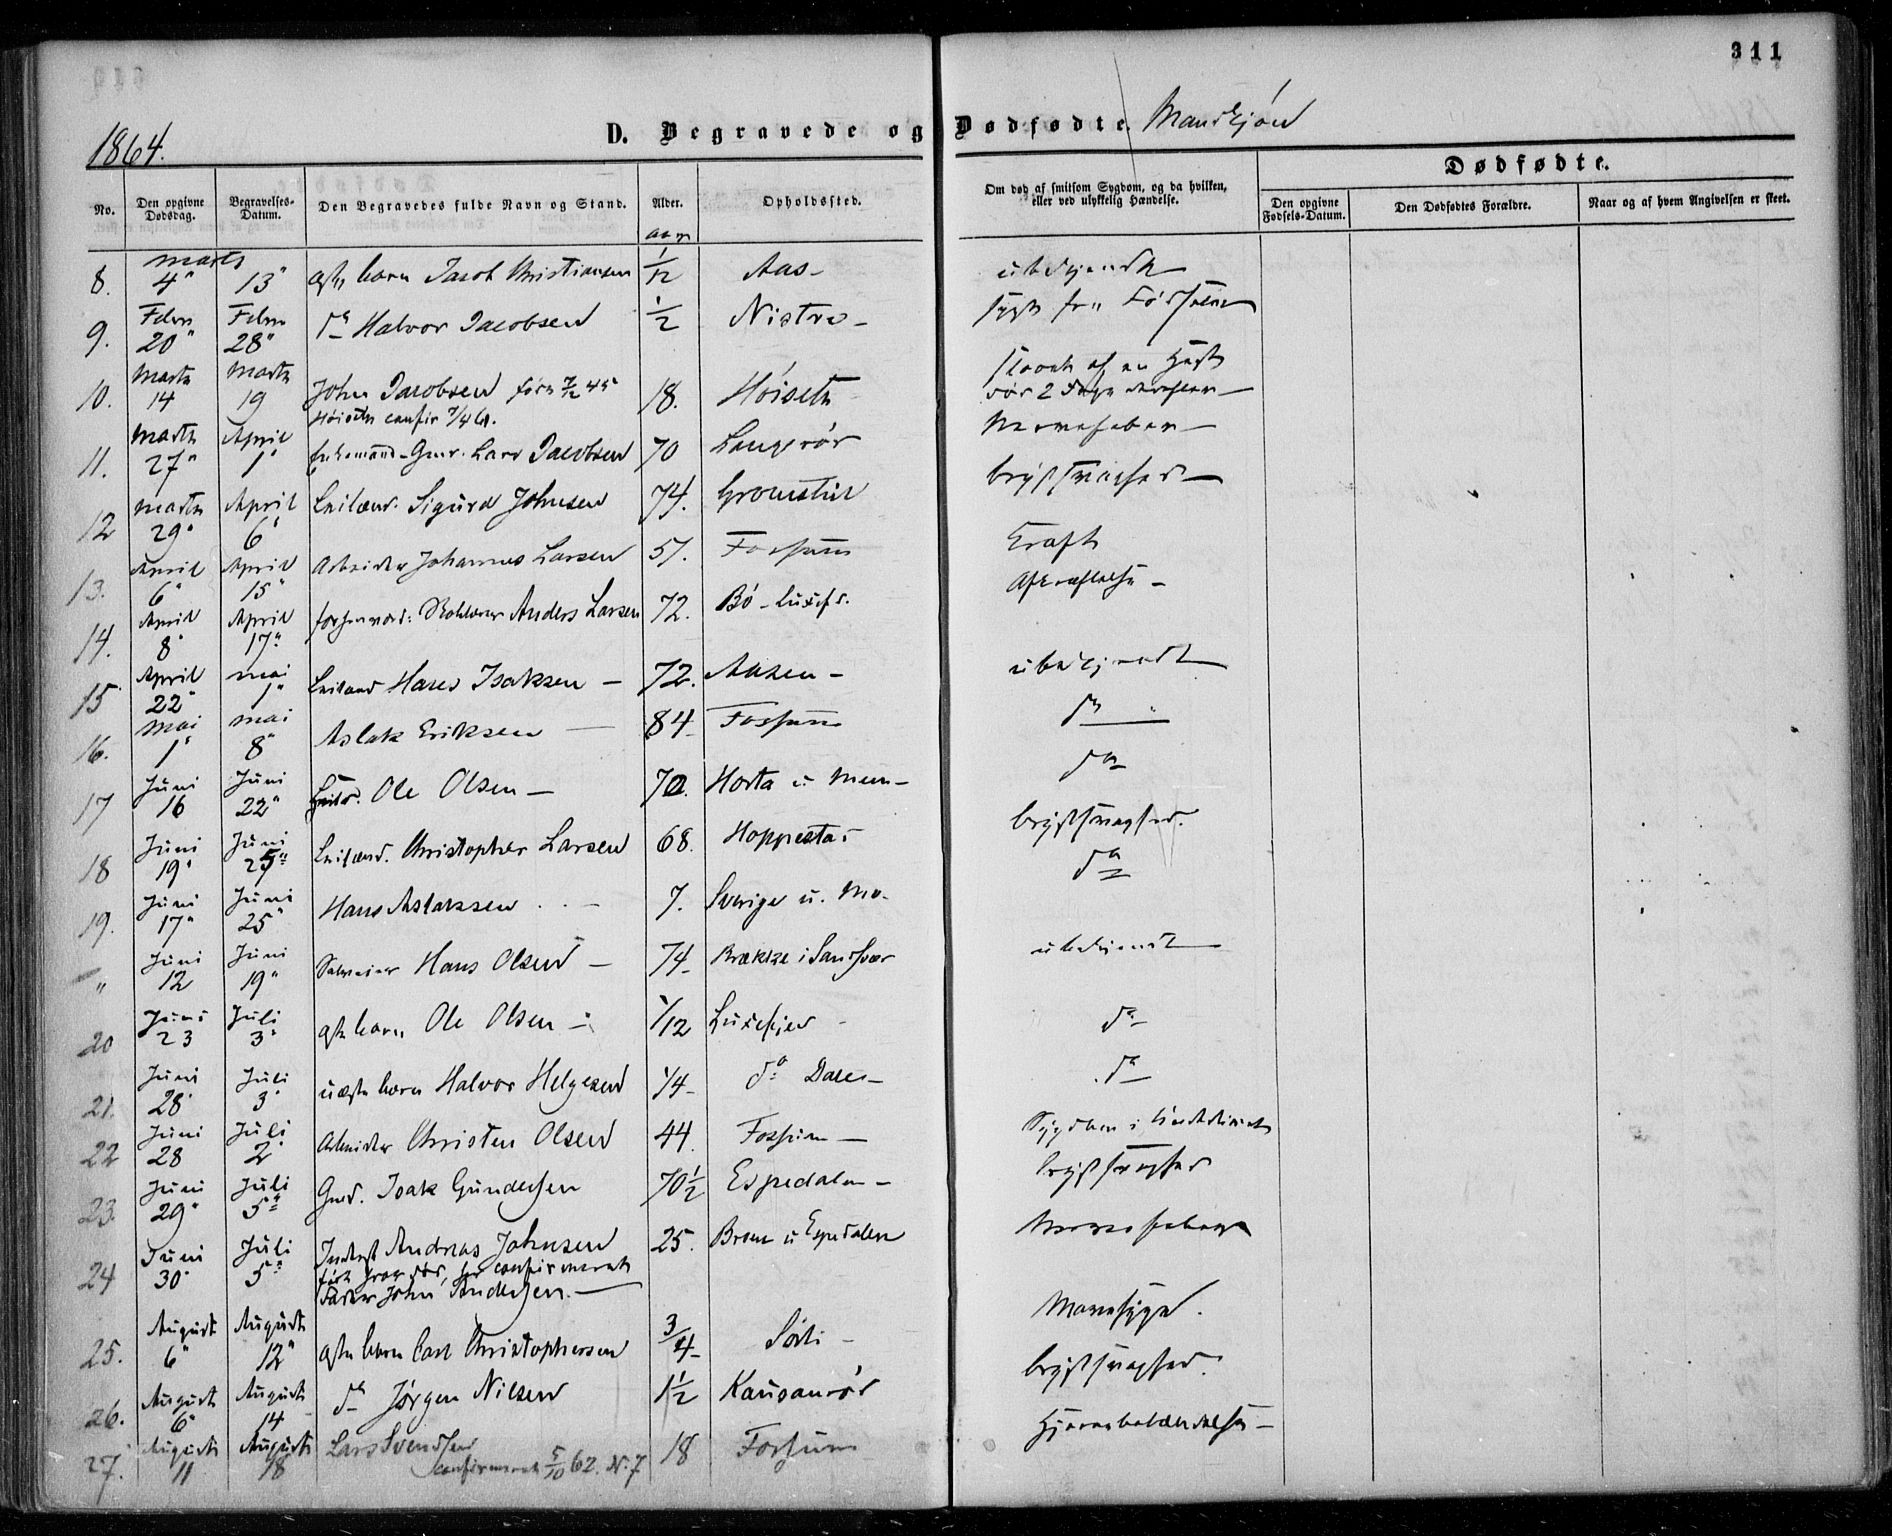 311
1864.
D. Begravede og Dødfødte. Mandkjøn
No.
Den opgivne Dødsdag.
Begravelses-Datum.
Den Begravedes fulde Navn og Stand.
Alder.
Opholdssted.
Om død af smitsom Sygdom, og da hvilken, eller ved ulykkelig Hændelse.
Dødfødte.
Den opgivne Fødsels-Datum.
Den Dødfødtes Forældre.
Naar og af hvem Angivelsen er skeet.
8. marts 4" 13" barn Jacob Christiansen 1/12 Aas- ubekjendt
9. Febr 20" Febr 28" do Halvor Jacobsen 1/2 Nistre- syg fra Fødselen
10. Marts 14 Marts 19 John Jacobsen født 7/2 45 18. Høiseth af en Hest
Høiseth confir 7/4 61. død 2 Dage derefter-
11. Marts 27" April 1" Enkemand Gmr. Lars Jacobsen 70 Langerød Nervefeber-
12 marts 29" April 6" Leilænd. Sigurd Johnsen 74. Gromstul brystsvaghed-
13. April 6" April 15" Arbeider Johannes Larsen 57. Fossum Kræft
14. April 8" April 17" forhenvær: Skolelærer Anders Larsen 72. Bø-Luxefj. Afkræftelse-
15 April 22" mai 1" Leilænd Hans Isaksen - 72. Aasen- ubekjendt
16. mai 1" mai 8" Aslak Eriksen 84- Fossum do
17 Juni 16 Juni 22" Leild. Ole Olsen - 70. Horta u. Meen- do
18 Juni 19" Juni 25" Leilænd. Christopher Larsen 68. Hoppestad brystsvaghed.
19. Juni 17" Juni 25" Hans Aslaksen 7. Sverige u. Mo. do
" Juni 12 Juni 19" Hans Olsen - 74- Brække i Sandsvær ubekjendt
20 Juni 23 Juli 3" barn Ole Olsen - 1/12 Luxefjel do
21. Juni 28" Juli 3" uægte barn Halvor Helgesen 1/4- do Dalen- do
22 Juni 28 Juli 2" Arbeider Christen Olsen 44. Fossum- Sygdom i Underlivet
23. Juni 29" Juli 5" Gmd. Isak Gundersen 70 1/2 Espedalen- brystsvaghed
24 Juni 30" Juli 5" Inderst Andreas Johnsen 25. Broen u Espedalen Nervefeber
confirmeret
Fader John Andersen.-
25. August 6" August 12" barn Carl Christophersen 3/4- Sørli- Mavesyge.
26. August 6" August 14 do Jørgen Nilsen 1 1/2 Kausanrød brystsvaghed.
27. August 11 August 18 Lars Svendsen 18 Fossum Hjernebetændelse-
confirmeret 5/10 62. N. 7